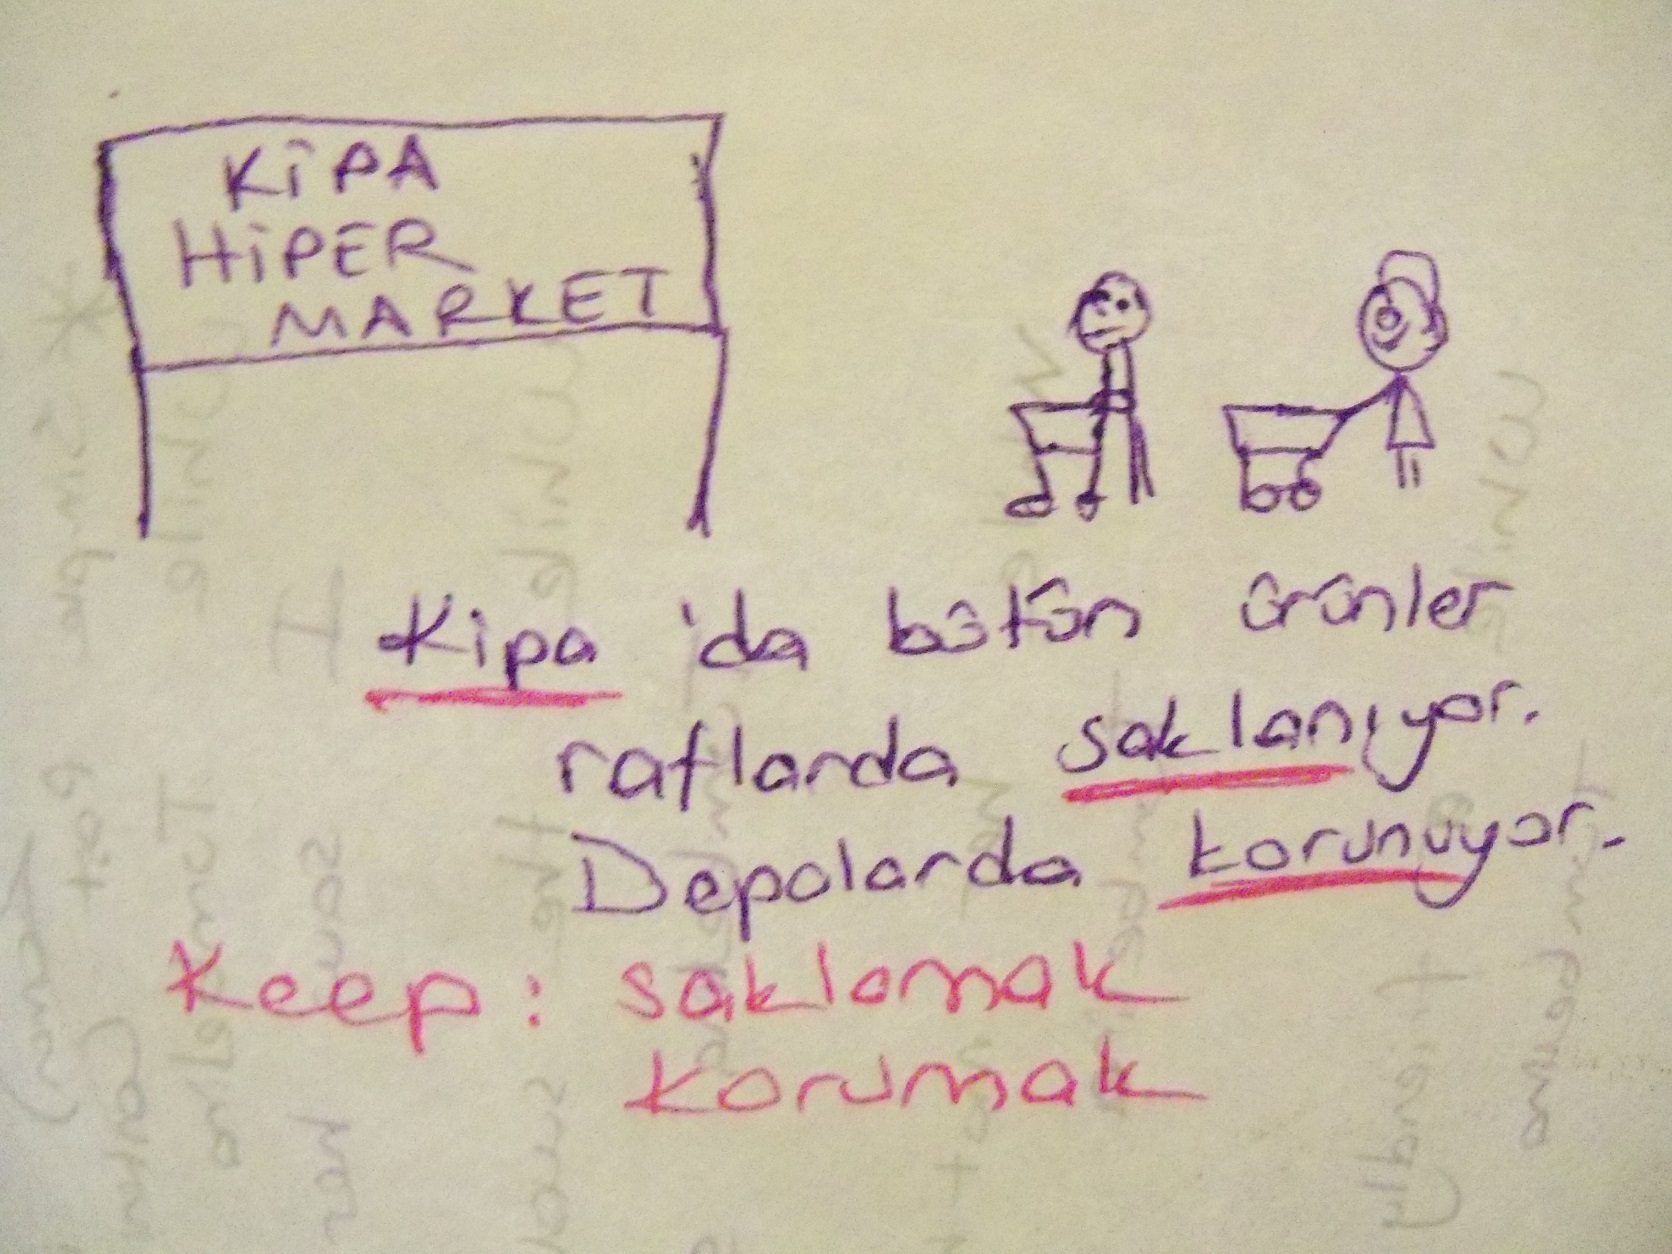 KİPA
HİPER
MARKET
Kipa 'da bütün ürünler
raflarda saklanıyor.
Depolarda korunuyor.
Keep: saklamak
korumak